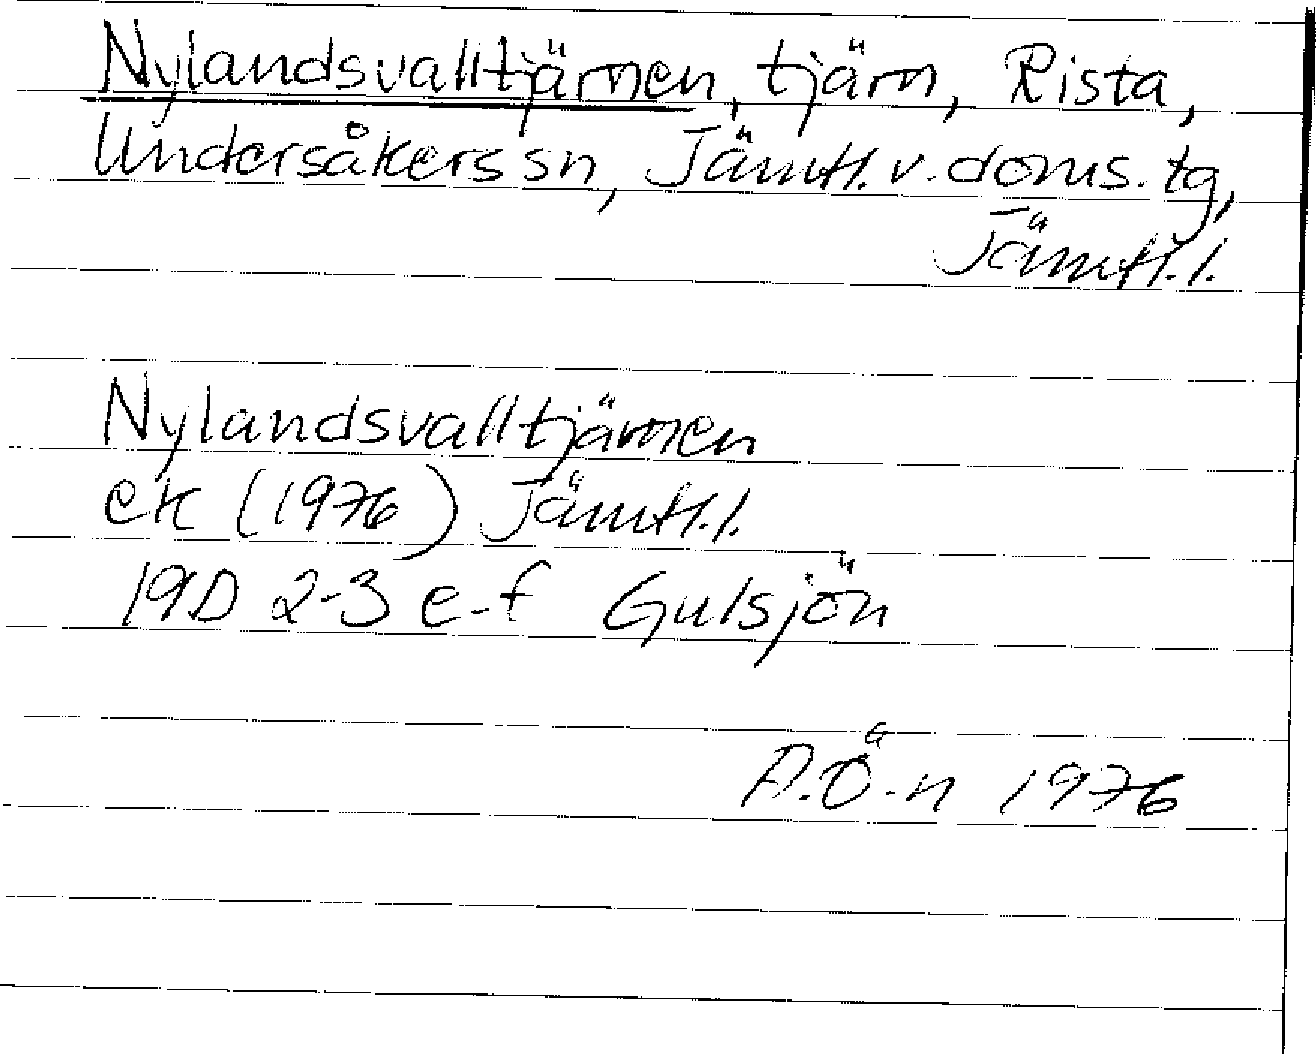 Nylandsvalltjärnen, tjärn, Rista,
Undersåkers sn, Jämtl. v. doms. tg,
Jämtl. l.
Nylandsvalltjärnen
ek (1976) Jämtl. l.
19D 2-3 e-f Gulsjön
A.Ö-n 1976